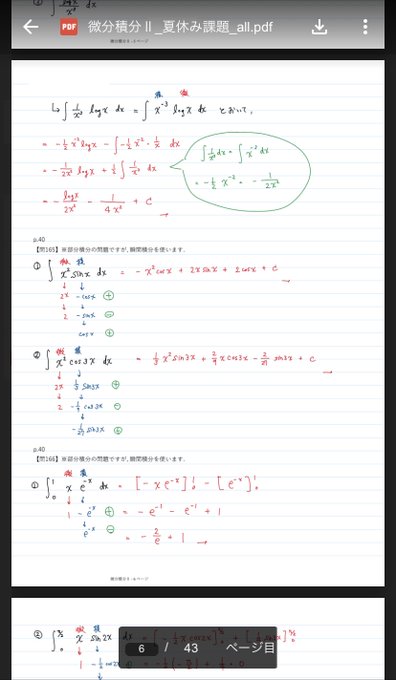 PDF 微分積分Ⅱ_夏休み課題_all.pdf
微分積分Ⅱ - 5ページ
積 微
↳ ∫ 1/x³ logx dx = ∫ x⁻³ logx dx とおいて、
= -1/2 x⁻² logx - ∫ -1/2 x⁻² · 1/x dx
= -1/2x² logx + 1/2 ∫ 1/x³ dx
= - logx/2x² - 1/4x² + C
∫ 1/x³ dx = ∫ x⁻³ dx
= -1/2 x⁻² = - 1/2x²
p.40
【問165】※部分積分の問題ですが、瞬間積分を使います。
微 積
① ∫ x² sinx dx = - x² cosx + 2x sinx + 2cosx + C
2x -cosx ⊕
2 -sinx ⊖
cosx ⊕
微 積
② ∫ x² cos3x dx = 1/3 x² sin3x + 2/9 x cos3x - 2/27 sin3x + C
2x 1/3 sin3x ⊕
2 -1/9 cos3x ⊖
-1/27 sin3x ⊕
p.40
【問166】※部分積分の問題ですが、瞬間積分を使います。
微 積
① ∫₀¹ x e⁻ˣ dx = [-x e⁻ˣ]₀¹ - [e⁻ˣ]₀¹
1 -e⁻ˣ ⊕ = -e⁻¹ - e⁻¹ + 1
e⁻ˣ ⊖ = - 2/e + 1
微分積分Ⅱ - 6ページ
微 積
② ∫ x sin2x dx
6 / 43 ページ目